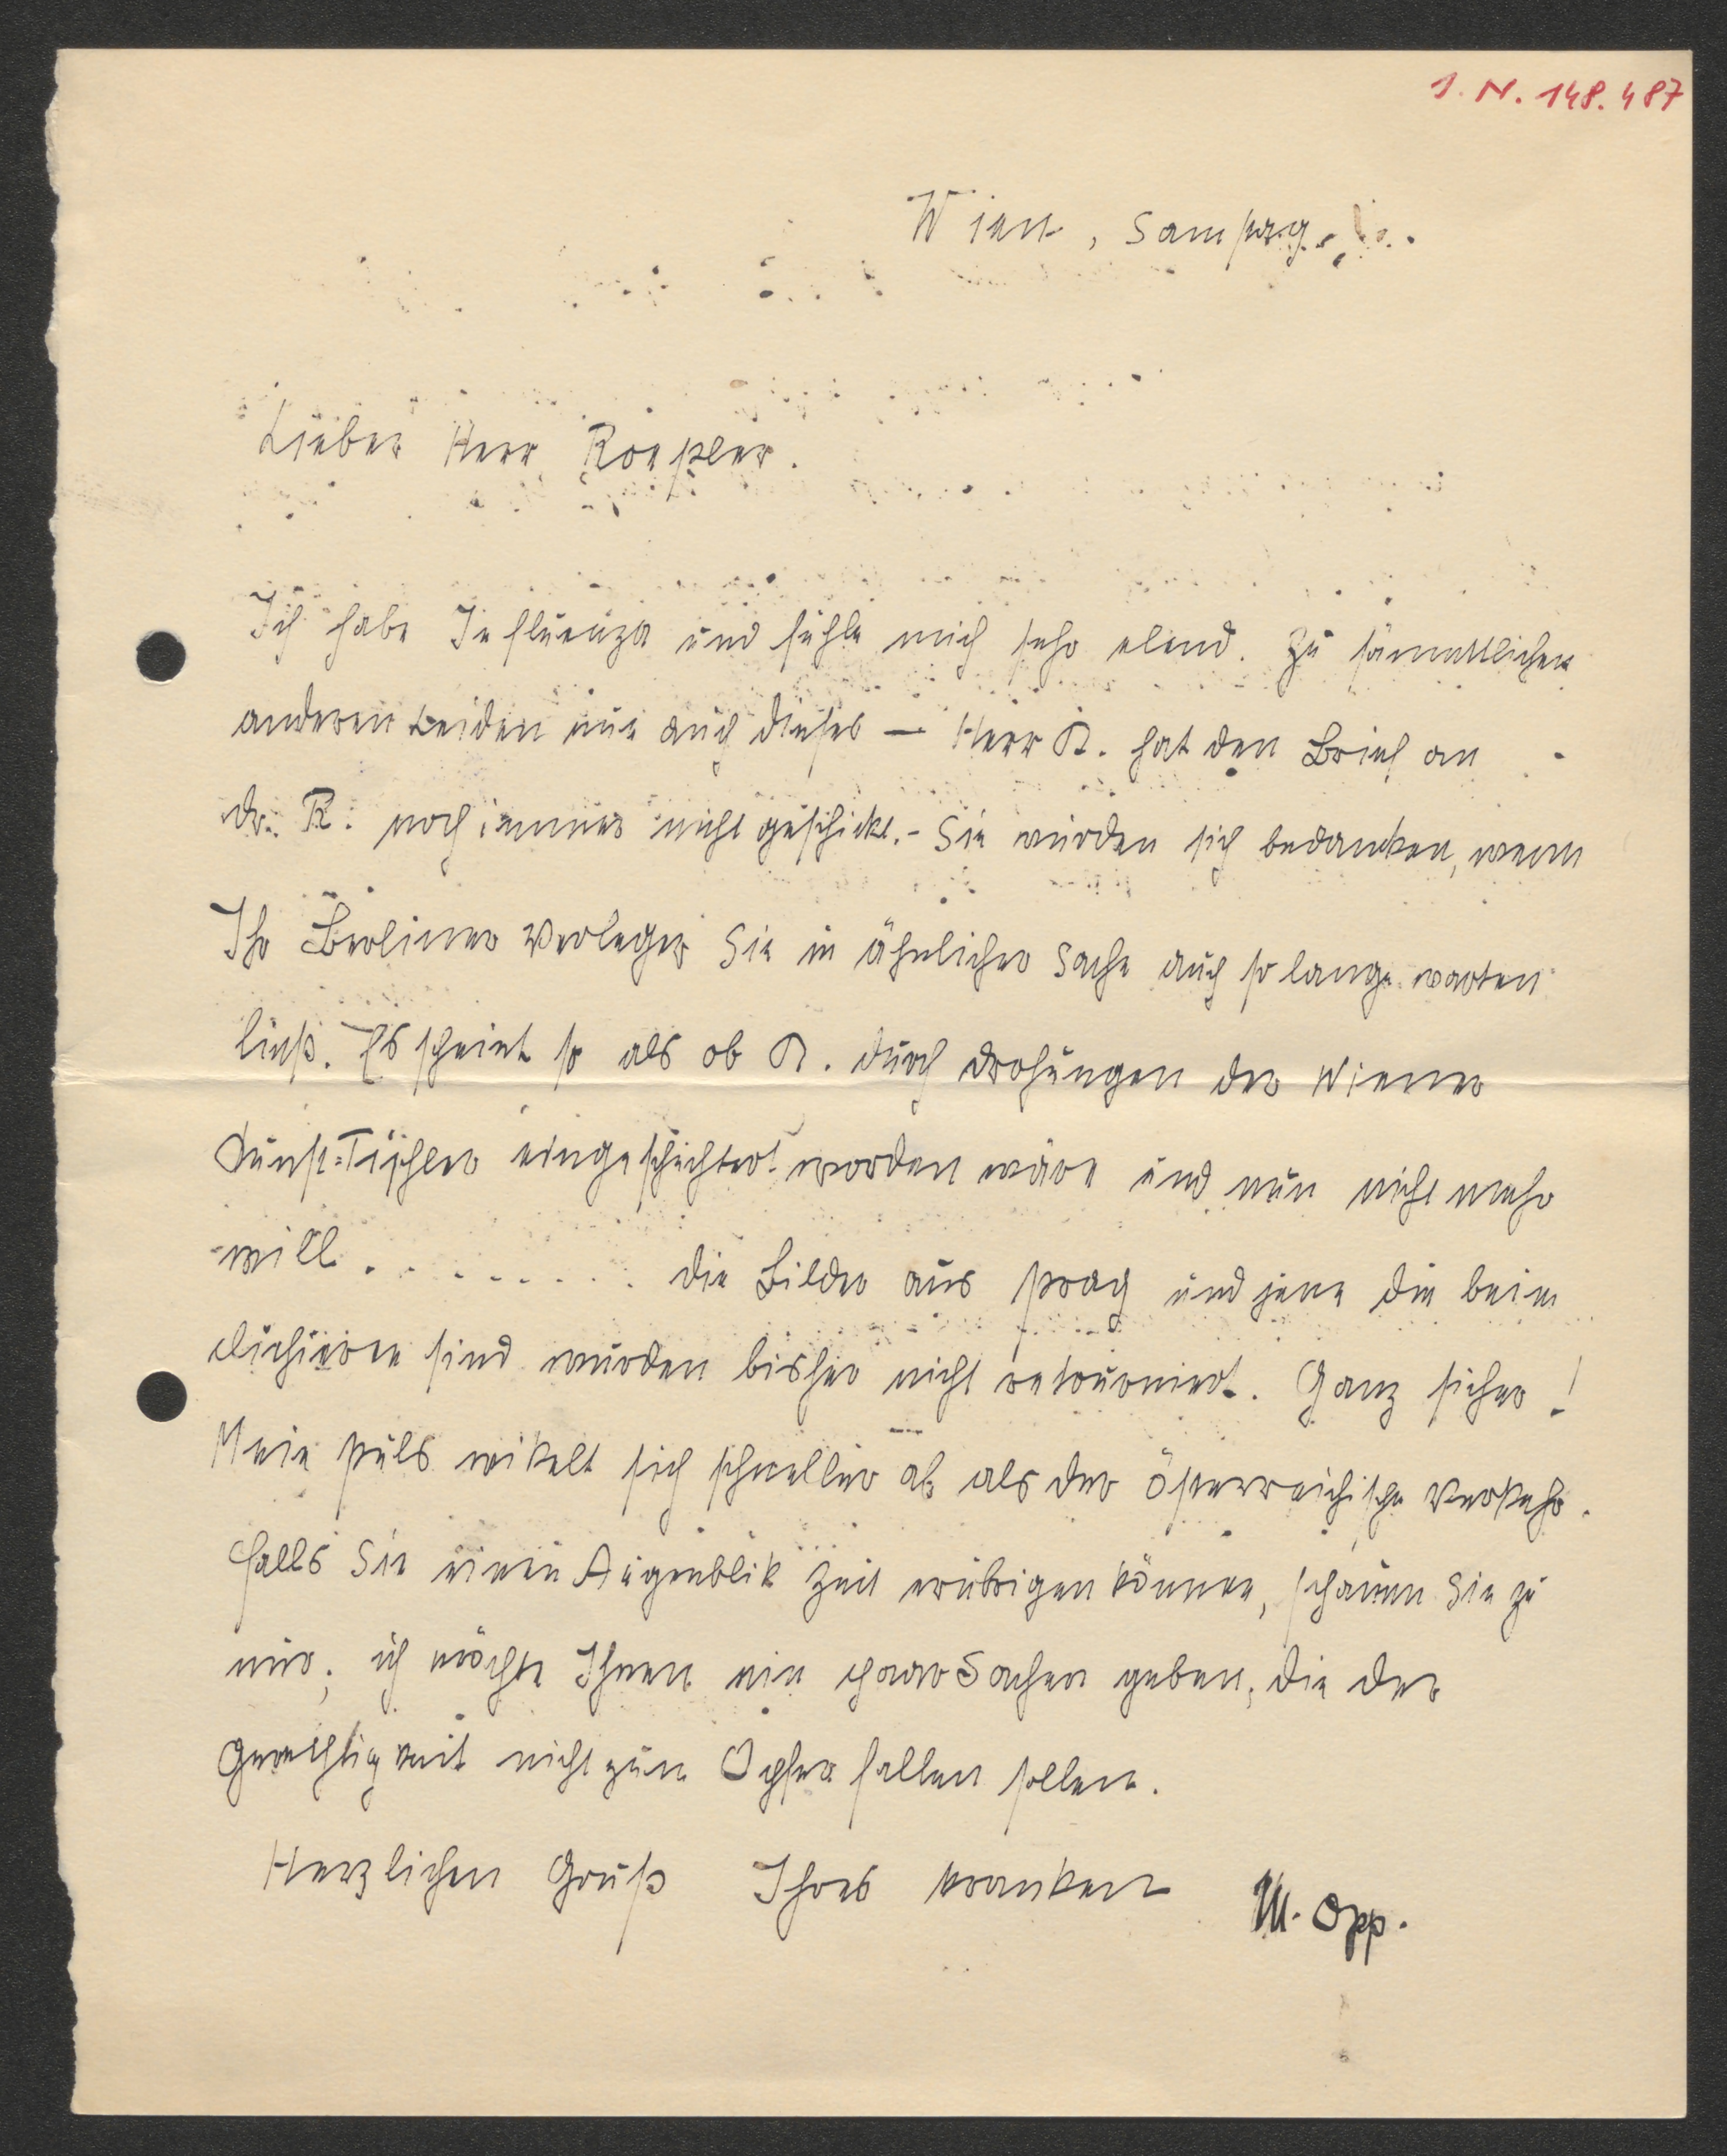 I. N. 148.487
Wien, Samstag.
Lieber Herr Roessler.
Ich habe Influenza und fühle mich sehr elend. Zu sämmtlichen
anderen Leiden nun auch dieses — Herr K. hat den Brief an
Dr. R. noch immer nicht geschickt. – Sie würden sich bedanken, wenn
Ihr Berliner Verleger Sie in ähnlicher Sache auch so lange warten
ließ. Es scheint so als ob K. durch Drohungen der Wiener
Kunst-Tischler eingeschüchtert worden wäre und nun nicht mehr
will. . . . . . . . . . Die Bilder aus Prag und jene die beim
clichieren sind wurden bisher nicht retourniert. Ganz sicher!
Mein Puls wikelt sich schneller ab als der österreichische Verkehr.
Falls Sie einen Augenblik Zeit erübrigen können, schauen Sie zu
mir; ich möchte Ihnen ein paar Sachen geben, die der
Gerechtigkeit nicht zum Opfer fallen sollen.
Herzlichen Gruß Ihres kranken M. Opp.